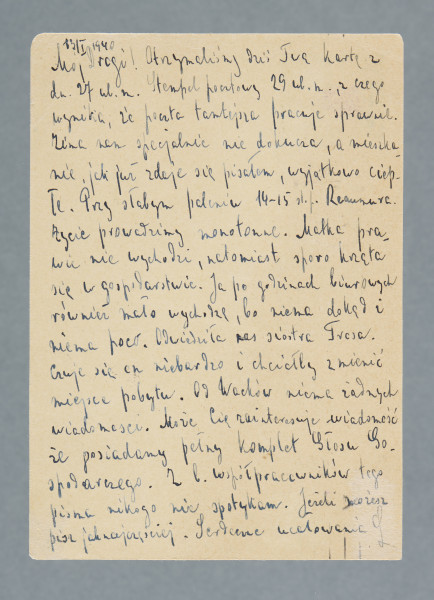 13/I 1940
Mój Drogi! Otrzymaliśmy dziś Twą kartę z
dn. 27 ub. m. Stempel pocztowy 29 ub. m., z czego
wynika, że poczta tamtejsza pracuje sprawnie.
Zima nam specjalnie nie dokucza, a mieszka-
nie, jak już zdaje się pisałem, wyjątkowo ciep-
łe. Przy słabym paleniu 14-15 st. p. Reaumura.
Życie prowadzimy monotonne. Matka pra-
wie nie wychodzi, natomiast sporo krząta
się w gospodarstwie. Ja po godzinach biurowych
również mało wychodzę, bo niema dokąd i
niema poco. Odwiedziła nas siostra
Czuje się on niebardzo i chciałby zmienić
miejsce pobytu. Od Wacków niema żadnych
wiadomości. Może Cię zainteresuje wiadomość
że posiadamy pełny komplet Głosu Go-
spodarczego. Z b. współpracowników tego
pisma nikogo nie spotykam. Jeżeli możesz
pisz jaknajczęściej. Serdeczne ucałowania